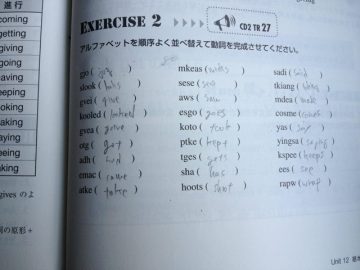 進行
coming
getting
giving
going
having
making
EXERCISE 2
CD2 TR 27
アルファベットを順序よく並べ替えて動詞を完成させてください。
gjo ( ) mkeas ( makes ) sadi ( said )
slook ( looks ) sese ( sees ) tkiang ( taking )
gvei ( give ) aws ( saw ) mdea ( made )
kooled ( looked ) esgo ( goes ) cosme ( comes )
gvea ( gave ) koto ( took ) yas ( say )
otg ( got ) ptke ( kept ) yingsa ( saying )
adh ( had ) tges ( gets ) kspee ( keeps )
emac ( came ) sha ( has ) ees ( see )
atke ( take ) hoots ( shoot ) rapw ( wrap )
gives のよ
詞の原形 +
Unit 12